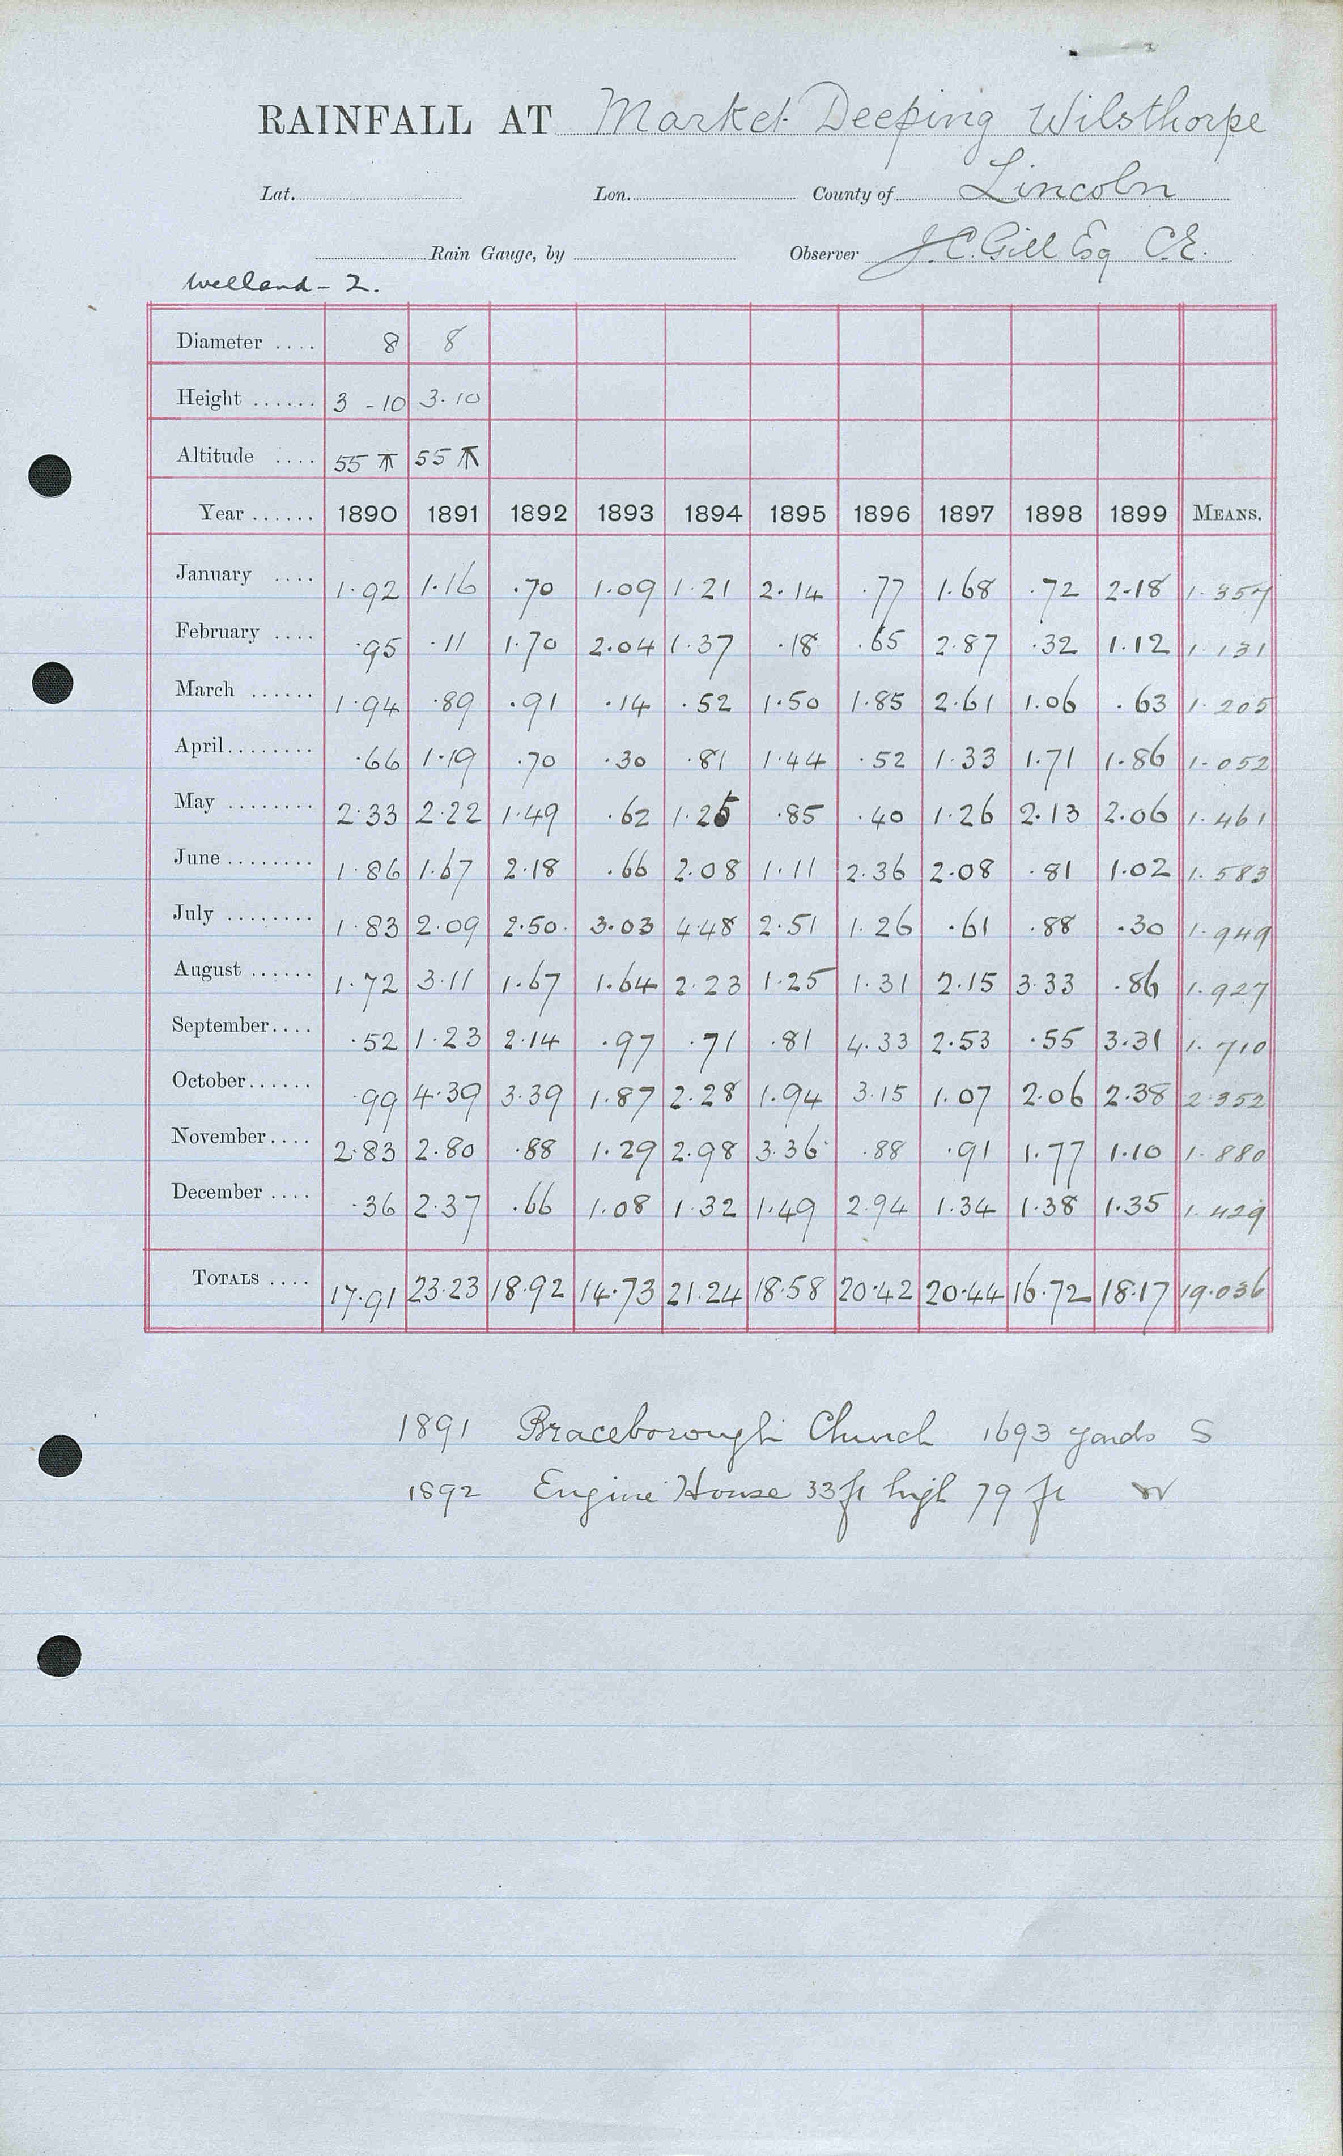 RAINFALL AT Market Deeping Wilsthorpe
Lat. Lon. County of Lincoln
Rain Gauge, by Observer J.C. Gill Esq C.E.
Welland - 2.
Diameter .... 8 8
Height ...... 3 - 10 3. 10
Altitude .... 55 55
Year ...... 1890 1891 1892 1893 1894 1895 1896 1897 1898 1899 MEANS.
January .... 1.92 1.16 .70 1.09 1.21 2.14 .77 1.68 .72 2.18 1.357
February .... .95 .11 1.70 2.04 1.37 .18 .65 2.87 .32 1.12 1.131
March ...... 1.94 .89 .91 .14 .52 1.50 1.85 2.61 1.06 .63 1.205
April........ .66 1.19 .70 .30 .81 1.44 .52 1.33 1.71 1.86 1.052
May ........ 2.33 2.22 1.49 .62 1.25 .85 .40 1.26 2.13 2.06 1.461
June ........ 1.86 1.67 2.18 .66 2.08 1.11 2.36 2.08 .81 1.02 1.583
July ........ 1.83 2.09 2.50. 3.03 4.48 2.51 1.26 .61 .88 .30 1.949
August ...... 1.72 3.11 1.67 1.64 2.23 1.25 1.31 2.15 3.33 .86 1.927
September.... .52 1.23 2.14 .97 .71 .81 4.33 2.53 .55 3.31 1.710
October...... .99 4.39 3.39 1.87 2.28 1.94 3.15 1.07 2.06 2.38 2.352
November.... 2.83 2.80 .88 1.29 2.98 3.36 .88 .91 1.77 1.10 1.880
December .... .36 2.37 .66 1.08 1.32 1.49 2.94 1.34 1.38 1.35 1.429
TOTALS .... 17.91 23.23 18.92 14.73 21.24 18.58 20.42 20.44 16.72 18.17 19.036
1891 Braceborough Church 1693 yards S
1892 Engine House 33 ft high 79 ft W